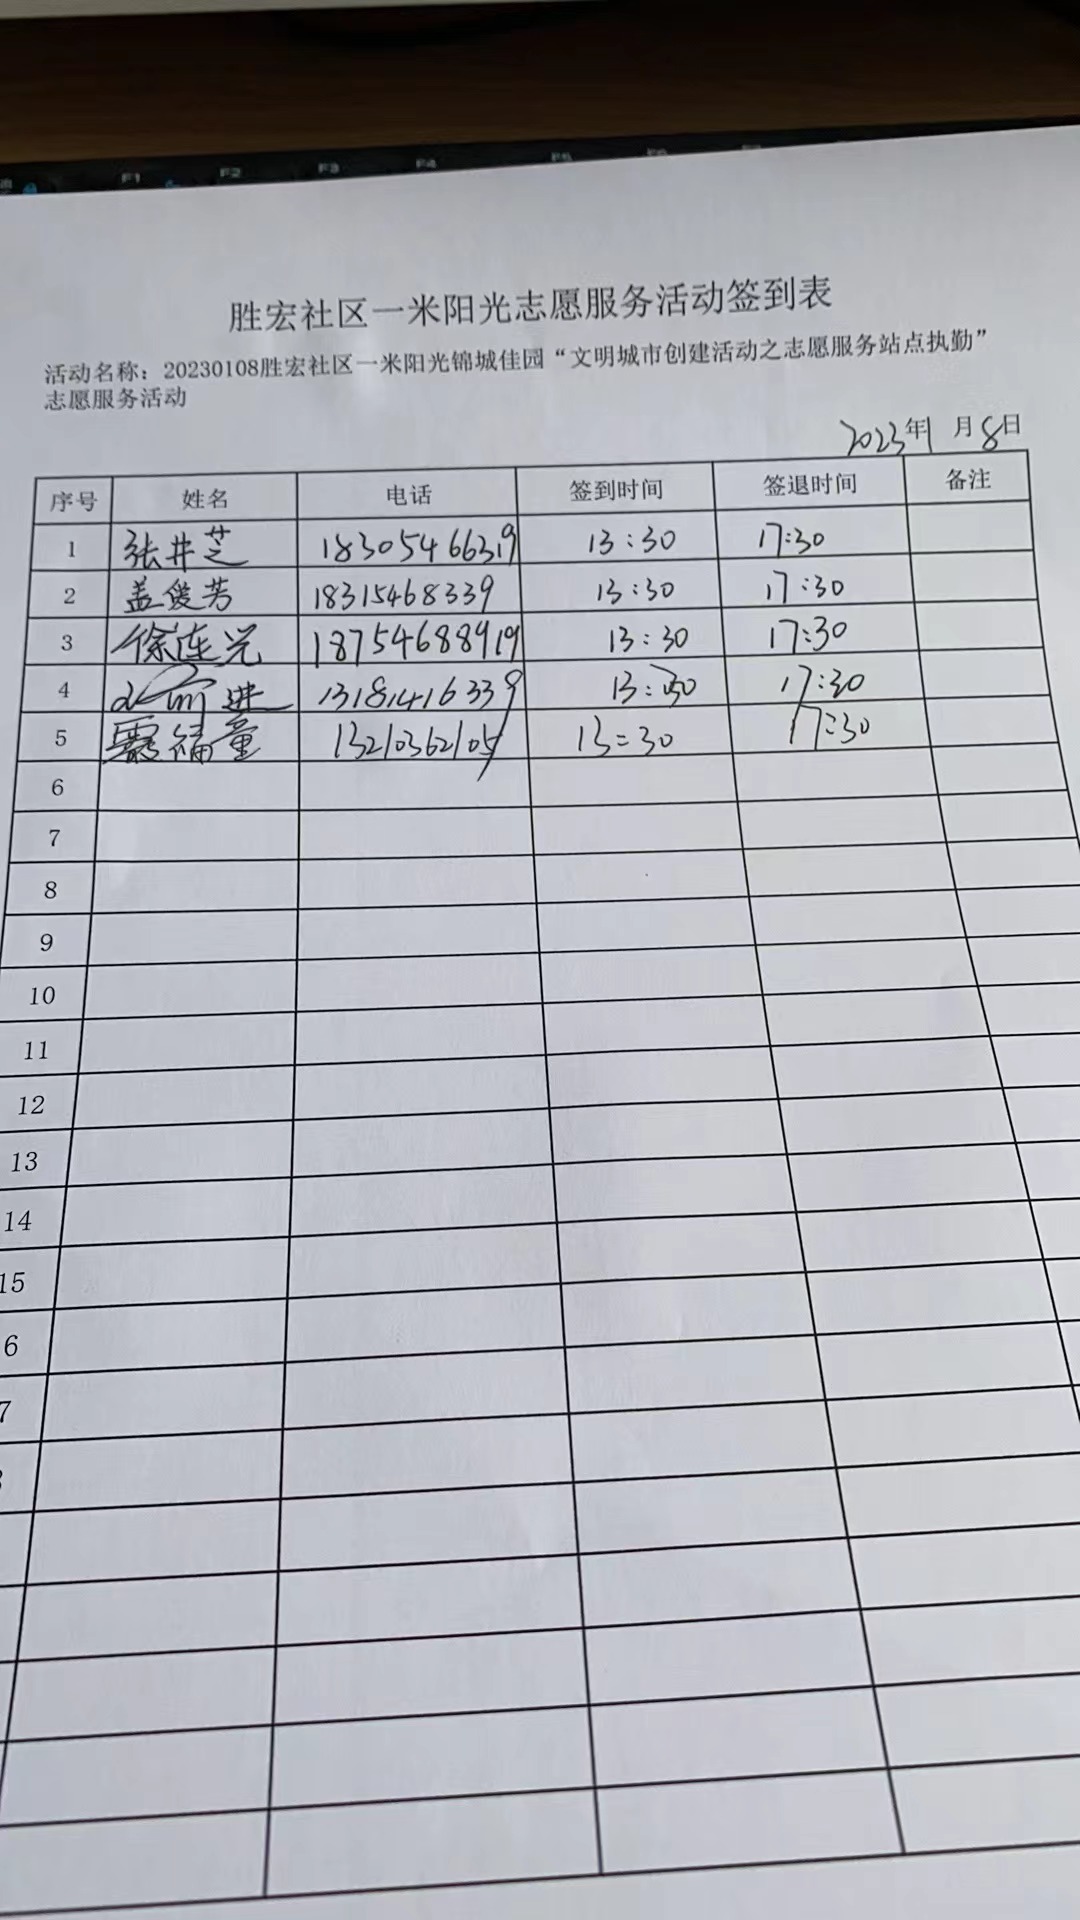 F1 F2 F3 F4 F5
胜宏社区一米阳光志愿服务活动签到表
活动名称：20230108胜宏社区一米阳光锦城佳园“文明城市创建活动之志愿服务站点执勤”
志愿服务活动
2023年1月8日
序号 姓名 电话 签到时间 签退时间 备注
1 张井芝 18305466319 13:30 17:30
2 盖俊芳 18315468339 13:30 17:30
3 徐连兴 18754688919 13:30 17:30
4 13181416339 13:30 17:30
5 13210362105 13:30 17:30
6
7
8
9
10
11
12
13
14
15
6
7